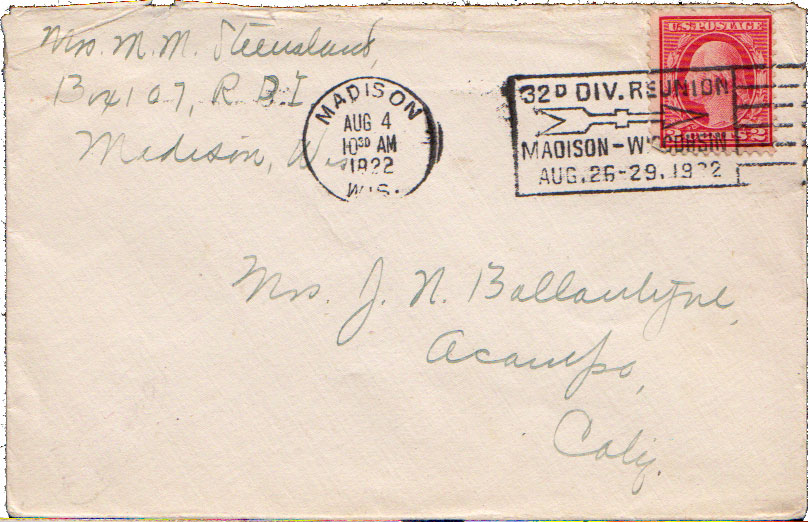 Mrs. M. M. Steensland,
Box 107, R. D. 1
Madison, Wis.
MADISON
AUG 4
10 30 AM
1922
WIS.
U.S. POSTAGE
2 2
32D DIV. REUNION
MADISON-WISCONSIN
AUG. 26-29. 1922
Mrs. J. N. Ballantyne,
Acampo,
Calif.